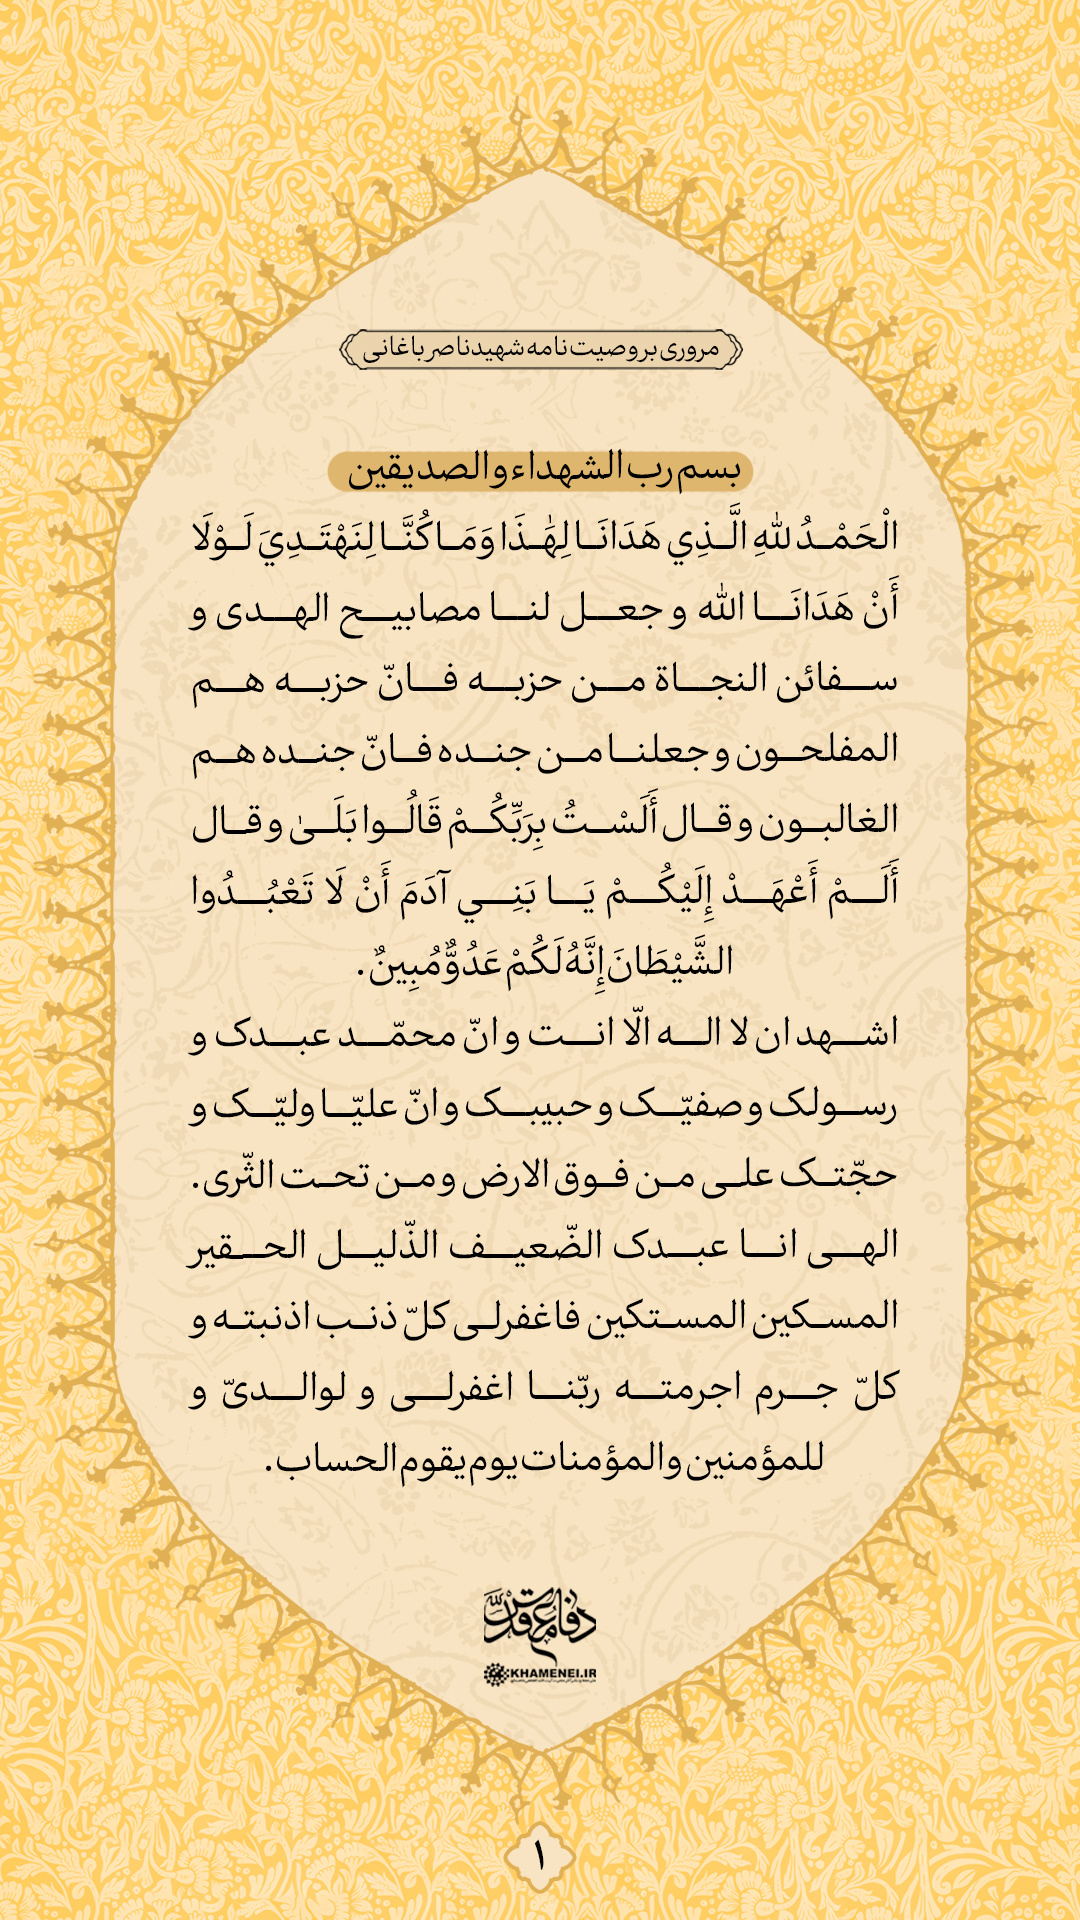 مروری بر وصیت نامه شهید ناصر باغانی
بسم رب الشهداء و الصدیقین
الْحَمْدُ للهِ الَّذِي هَدَانَا لِهَٰذَا وَمَا كُنَّا لِنَهْتَدِيَ لَوْلَا
أَنْ هَدَانَا الله و جعل لنا مصابیح الهدی و
سفائن النجاة من حزبه فانّ حزبه هم
المفلحون و جعلنا من جنده فانّ جنده هم
الغالبون و قال أَلَسْتُ بِرَبِّكُمْ قَالُوا بَلَىٰ و قال
أَلَمْ أَعْهَدْ إِلَيْكُمْ يَا بَنِي آدَمَ أَنْ لَا تَعْبُدُوا
الشَّيْطَانَ إِنَّهُ لَكُمْ عَدُوٌّ مُبِينٌ.
اشهد ان لا اله الّا انت و انّ محمّد عبدک و
رسولک و صفیّک و حبیبک و انّ علیّا ولیّک و
حجّتک علی من فوق الارض و من تحت الثّری.
الهی انا عبدک الضّعیف الذّلیل الحقیر
المسکین المستکین فاغفرلی کلّ ذنب اذنبته و
کلّ جرم اجرمته ربّنا اغفرلی و لوالدیّ و
للمؤمنین و المؤمنات یوم یقوم الحساب.
دفاع مقدس
KHAMENEI.IR
۱